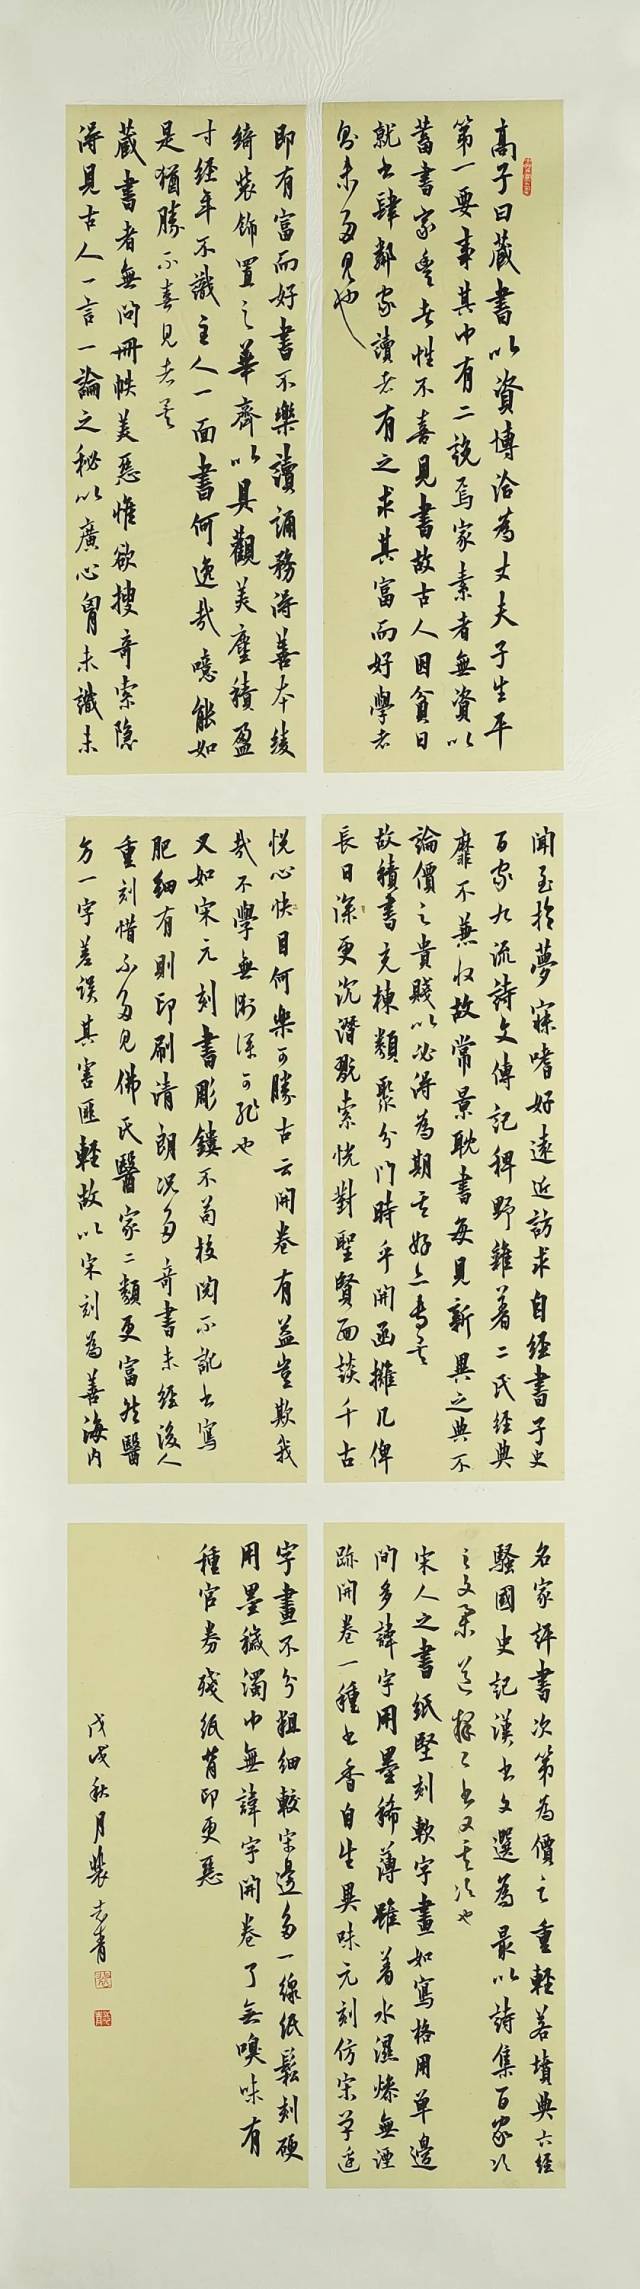 高子曰藏書以資博洽為丈夫子生平
第一要事其中有二說焉家素者無資以
蓄書家豐者性不喜見書故古人因貧日
就書肆鄰家讀者有之求其富而好學者
則未多見也
即有富而好書不樂讀誦務得善本綾
綺裝飾置之華齋以具觀美塵積盈
寸經年不識主人一面書何逸哉噫能如
是猶勝不喜見者矣
藏書者無問冊帙美惡惟欲搜奇索隱
得見古人一言一論之秘以廣心胸未識未
聞至於夢寐嗜好遠近訪求自經書子史
百家九流詩文傳記稗野雜著二氏經典
靡不兼收故常景耽書每見新異之典不
論價之貴賤以必得為期其好亦專矣
故積書充棟類聚分門時乎開函攤几俾
長日深更沉潛玩索恍對聖賢面談千古
悅心快目何樂可勝古云開卷有益豈欺我
哉不學無術深可恥也
又如宋元刻書彫鏤不苟校閱不訛書寫
肥細有則印刷清朗況多奇書未經後人
重刻惜不多見佛氏醫家二類更富然醫
方一字差誤其害匪輕故以宋刻為善海內
名家評書次第為價之重輕若墳典六經
騷國史記漢書文選為最以詩集百家次
之文集道釋二書又其次也
宋人之書紙堅刻軟字畫如寫格用單邊
間多諱字用墨稀薄雖着水濕燥無湮
跡開卷一種書香自生異味元刻仿宋單邊
字畫不分粗細較宋邊多一線紙鬆刻硬
用墨穢濁中無諱字開卷了無嗅味有
種官券殘紙背印更惡
戊戌秋月裴志青